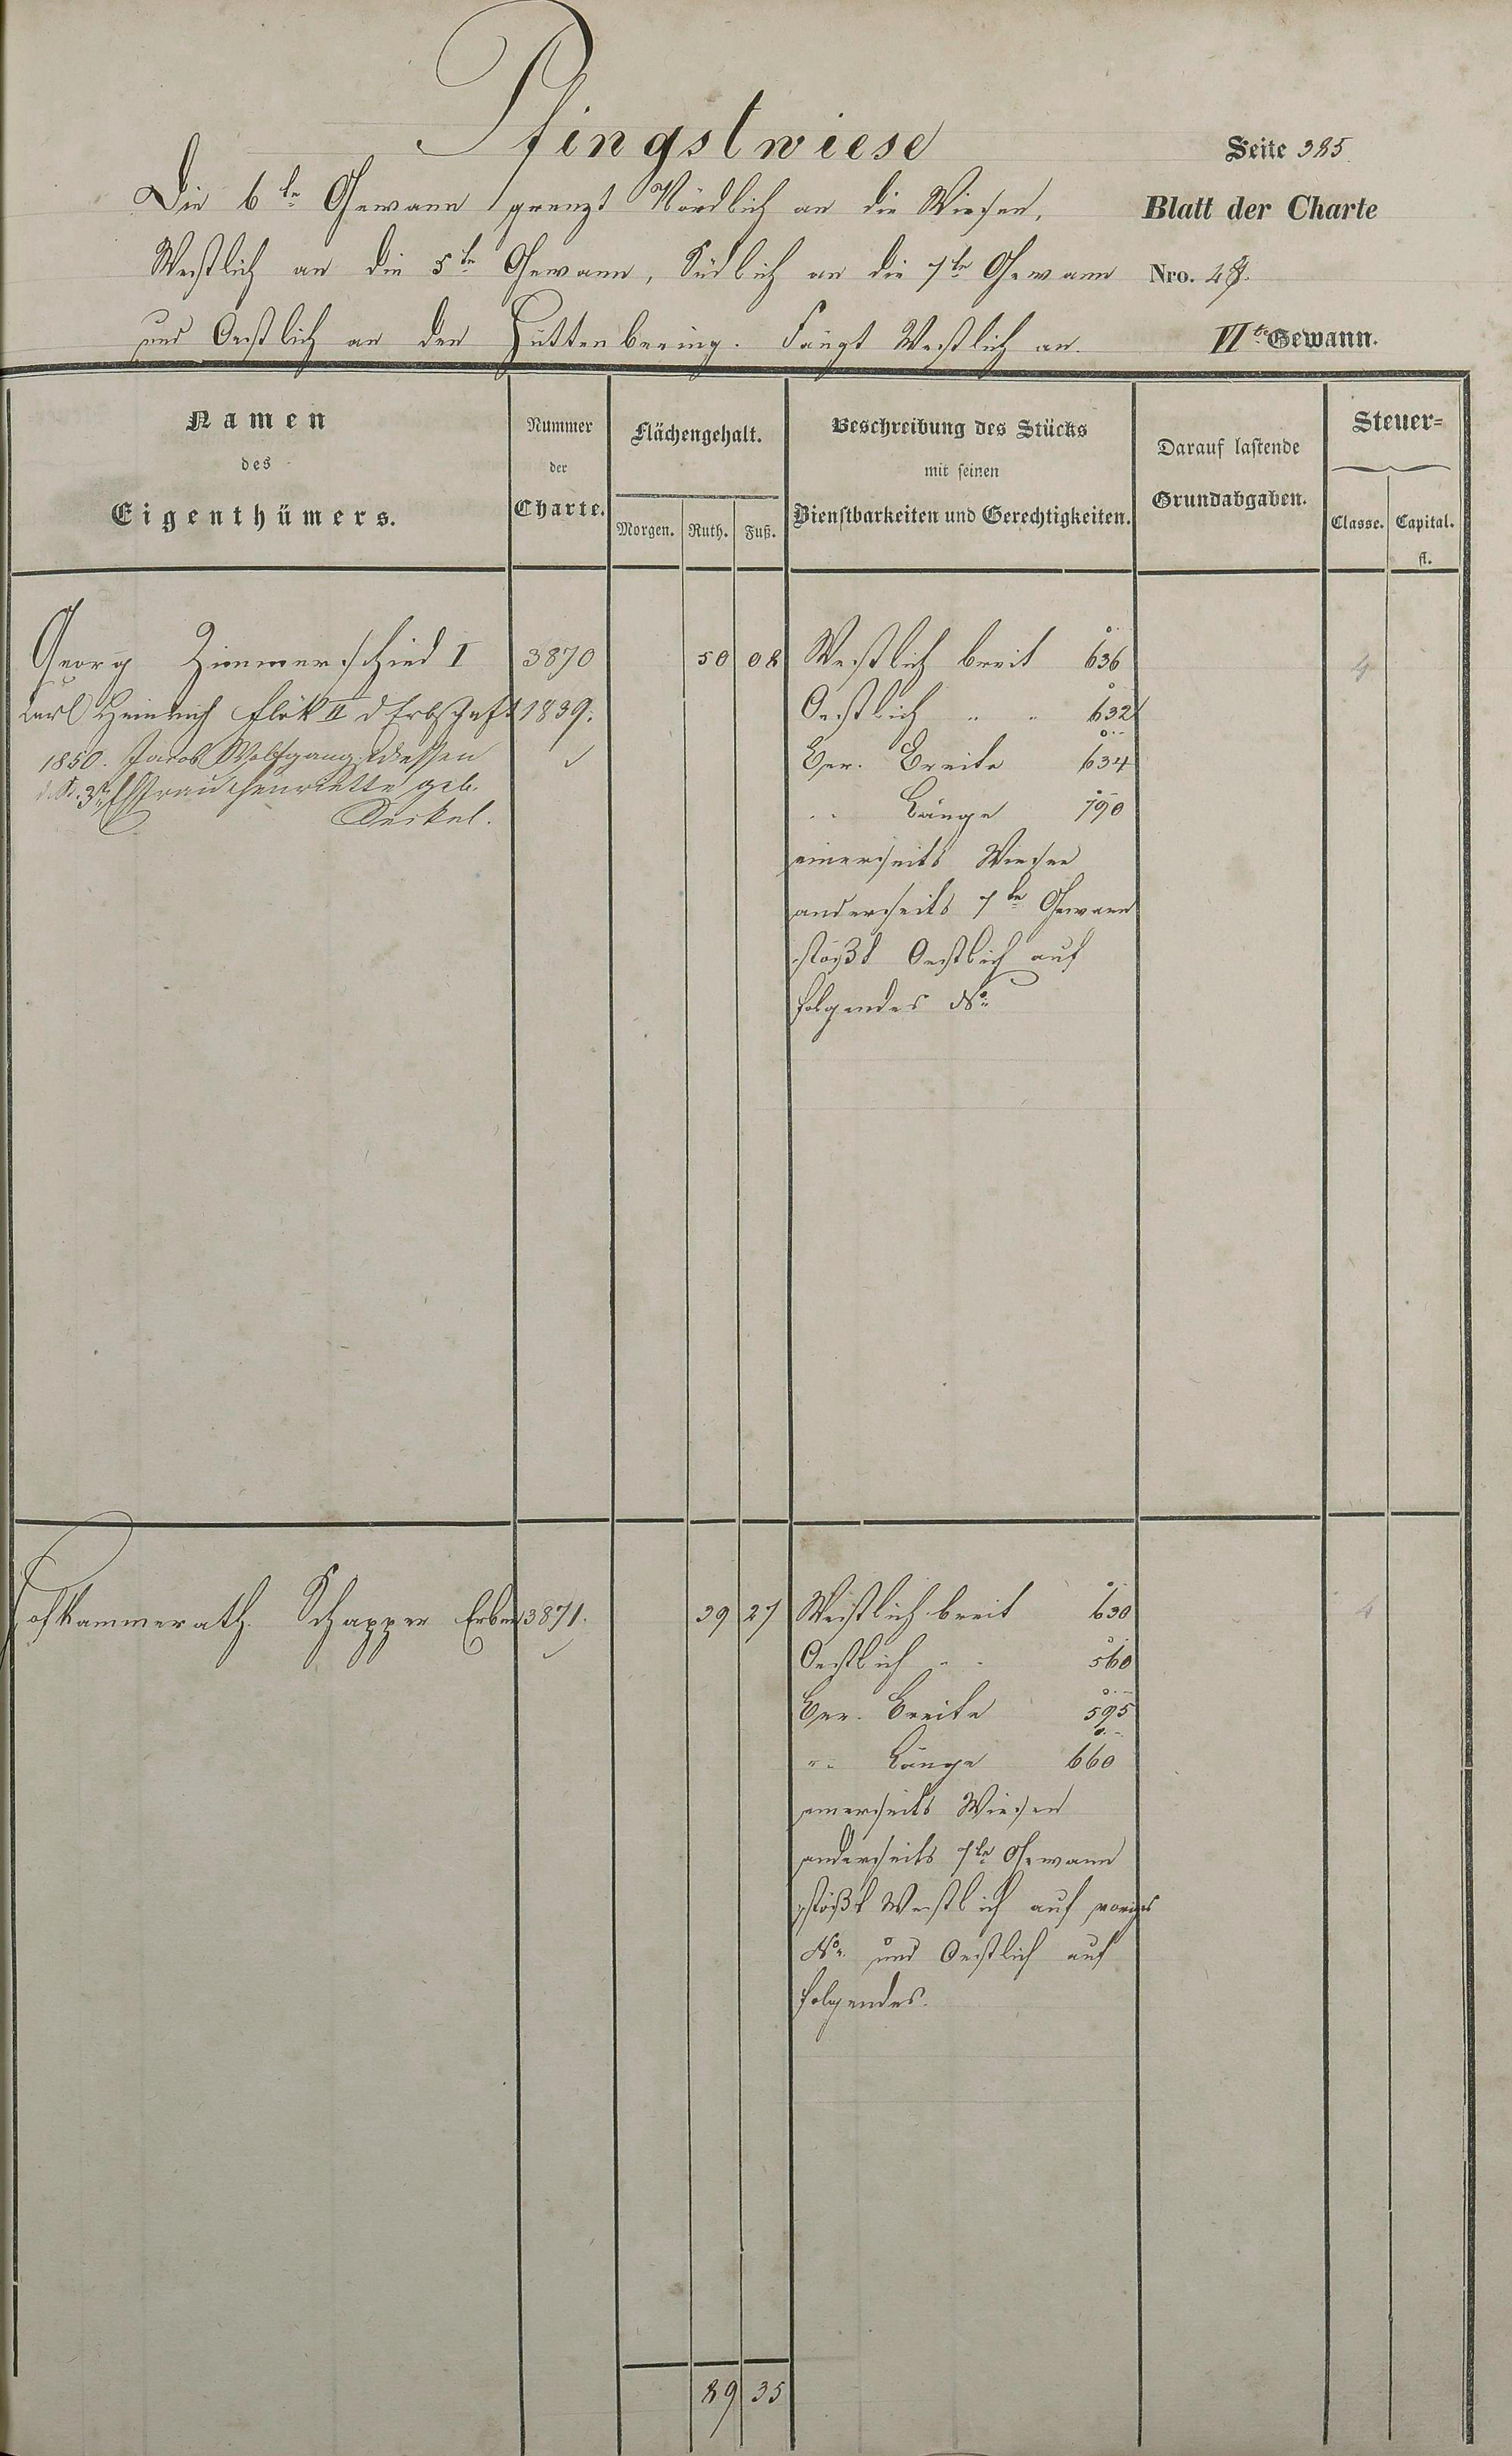 Pfingstwiese
Seite 385.
Die 6te Gewann grenzt Nördlich an die Wiesen,
Blatt der Charte
Westlich an die 5te Gewann, Südlich an die 7te Gewann
Nro. 48.
und Oestlich an den Hüttenbering. Fängt Westlich an.
VIte Gewann.
Namen
des
Eigenthümers.
Nummer
der
Charte.
Flächengehalt.
Morgen. Ruth. Fuß.
Beschreibung des Stücks
mit seinen
Dienstbarkeiten und Gerechtigkeiten.
Darauf lastende
Grundabgaben.
Steuer=
Classe. Capital.
fl.
Georg Zimmerschied I 3870 50 08 Westlich breit 636 4
Carl Heinrich Flök II d Erbschaft 1839. Oestlich " " 632
1850. Jacob Wolfgang dessen Ver. Breite 634
Ehfrau Henriette geb.
" Länge 790
einerseits Wiesen
anderseits 7te Gewann
stößt Oestlich auf
folgendes No.
Hofkammerath Schapper Erben 3871. 39 27 Westlich breit 630 4
Oestlich " " 560
Ver. Breite 595
" Länge 660
einerseits Wiesen
anderseits 7te Gewann
stößt Westlich auf voriges
No. und Oestlich auf
folgendes.
89 35